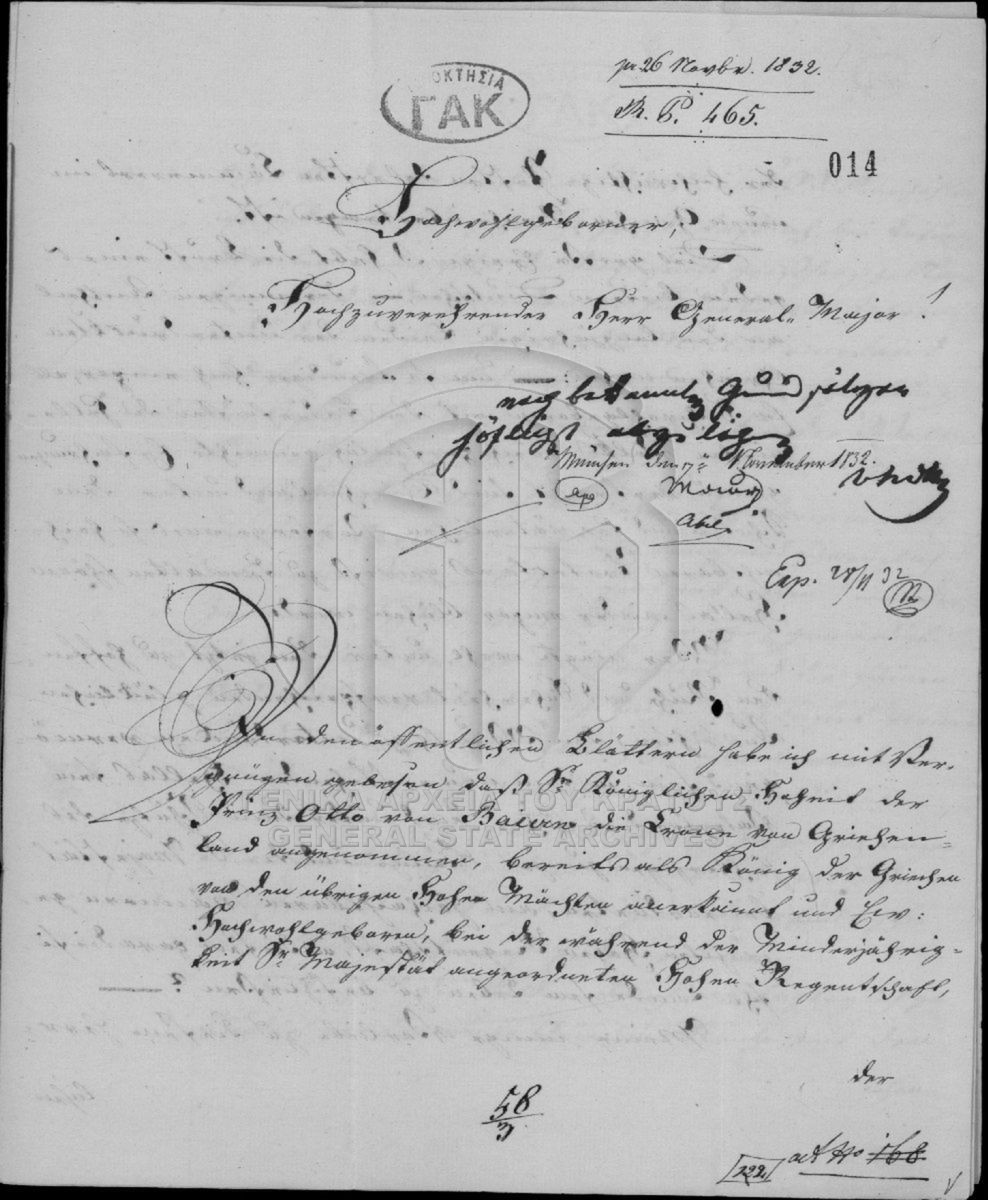 pr 26 Novbr. 1832.
R. P. 465.
ΟΚΤΗΣΙΑ
ΓΑΚ
014
Hochwohlgeborner,
Hochzuverehrender Herr General-Major!
München den November 1832.
Maurer
Abel
Exp. 28/11 32
In den öffentlichen Blättern habe ich mit Ver-
gnügen gelesen daß Sr. Königlichen Hoheit der
Prinz Otto von Baiern die Krone von Griechen-
land angenommen, bereits als König der Griechen
von den übrigen Hohen Mächten anerkannt und Ew:
Hochwohlgeboren, bei der während der Minderjährig-
keit Sr. Majestät angeordneten Hohen Regentschaft,
der
ΓΕΝΙΚΑ ΑΡΧΕΙΑ ΤΟΥ ΚΡΑΤΟΥΣ
GENERAL STATE ARCHIVES
58
3
122
ad No 168